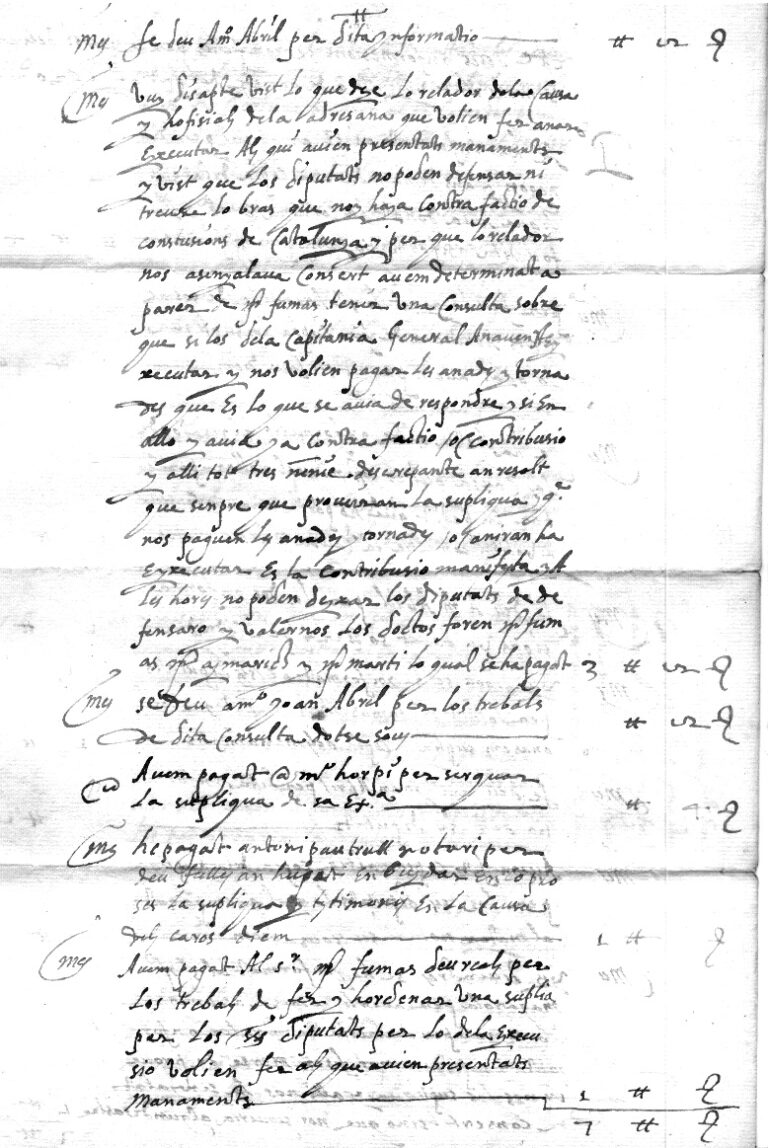 mes se deu a Mº Abril per dita ynformatio — ħ us ϱ
mes vuy disapte vist lo que dese lo relador dela Causa
y hofisials de la adresana que volien fer anar
executar Als qui avien presentats manaments
y vist que los diputats no poden defensar ni
treure lo bras que noy haja contra factio de
constusions de Catalunya y per que lo relador
nos asenyalava Consert avem determinat a
parer de fumas tenir una Consulta sobre
que si los dela Capitania General Anaven
xecutar y nos volien pagar les anades y torna
des que es lo que se avia de respondre y si en
allo y avia ya contra factio o contribusio
y alli tots tres nemine discrepante an resolt
que senpre que proveiran la supliqua y q.
nos paguen les anades y tornades o aniran ha
exxecutar es la contribusio manifesta y A
les hores no poden dexar los diputats de de
fensaro y valernos los doctos foren fum
as y marti lo qual se ha pagat 3 ħ us ϱ
mes se deu a mº Joan Abril per los trebals
de dita Consulta dotse sous — ħ us ϱ
Avem pagat a mº horpi per serquar
la supliqua de sa Exª — ħ 4 ϱ
mes he pagat antoni pau trull notari per
deu fulls an en
ses la supliqua y tytimonis en la Causa
dels caros diem — 1 ħ ϱ
mes Avem pagat Al sr. fumas deu reals per
los trebals de fer y hordenar una suplia
per los diputats per lo dela execu
sio volien fer als que avien presentats
manaments — 1 ħ ϱ
7 ħ ϱ